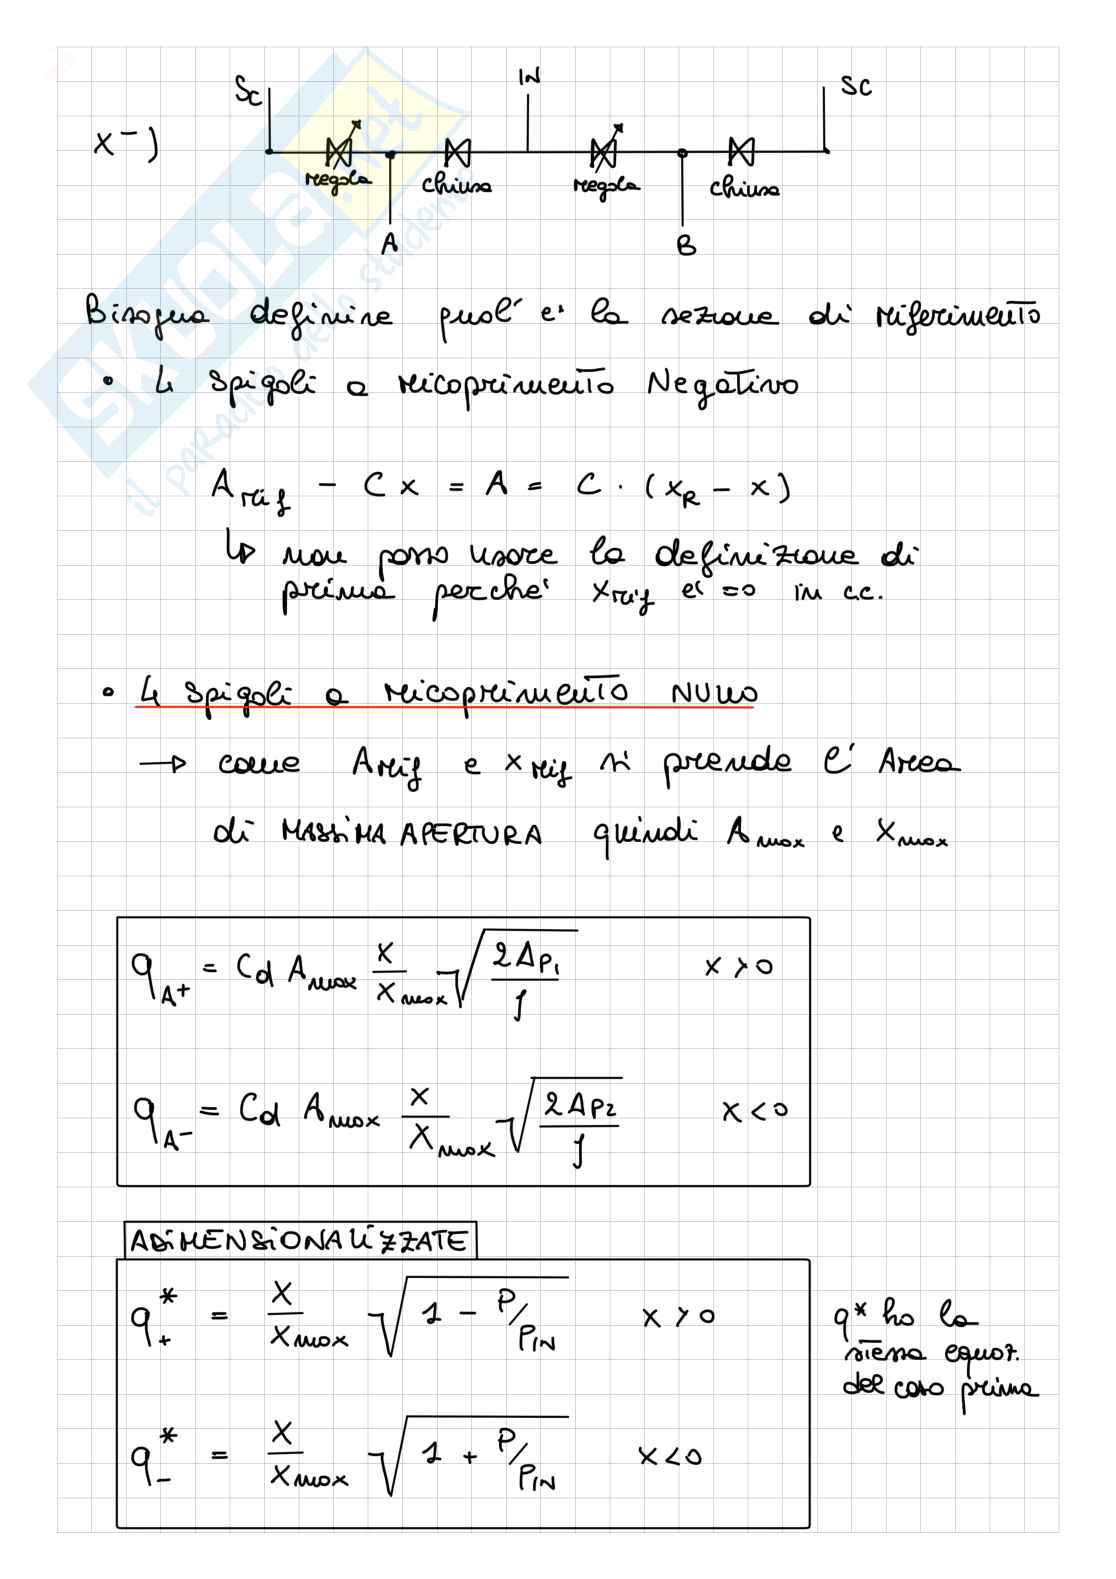 Sc IN Sc
x-)
regola chiusa regola chiusa
A B
Bisogna definire qual'e' la sezione di riferimento
• 4 spigoli a ricoprimento Negativo
A rif - C x = A = C · (x_R - x)
↳ non posso usare la definizione di
prima perche' x rif e' =0 in c.c.
• 4 spigoli a ricoprimento NULLO
→ come A rif e x rif si prende l'Area
di MASSIMA APERTURA quindi A max e X max
q_A+ = Cd A max x/x max √(2Δp₁/ρ) x>0
q_A- = Cd A max x/x max √(2Δp₂/ρ) x<0
ADIMENSIONALIZZATE
q*₊ = x/x max √(1 - P/P_IN) x>0
q* ho la
stessa equaz.
del caso prima
q*₋ = x/x max √(1 + P/P_IN) x<0
SKUOLA.net
il paradiso dello studente